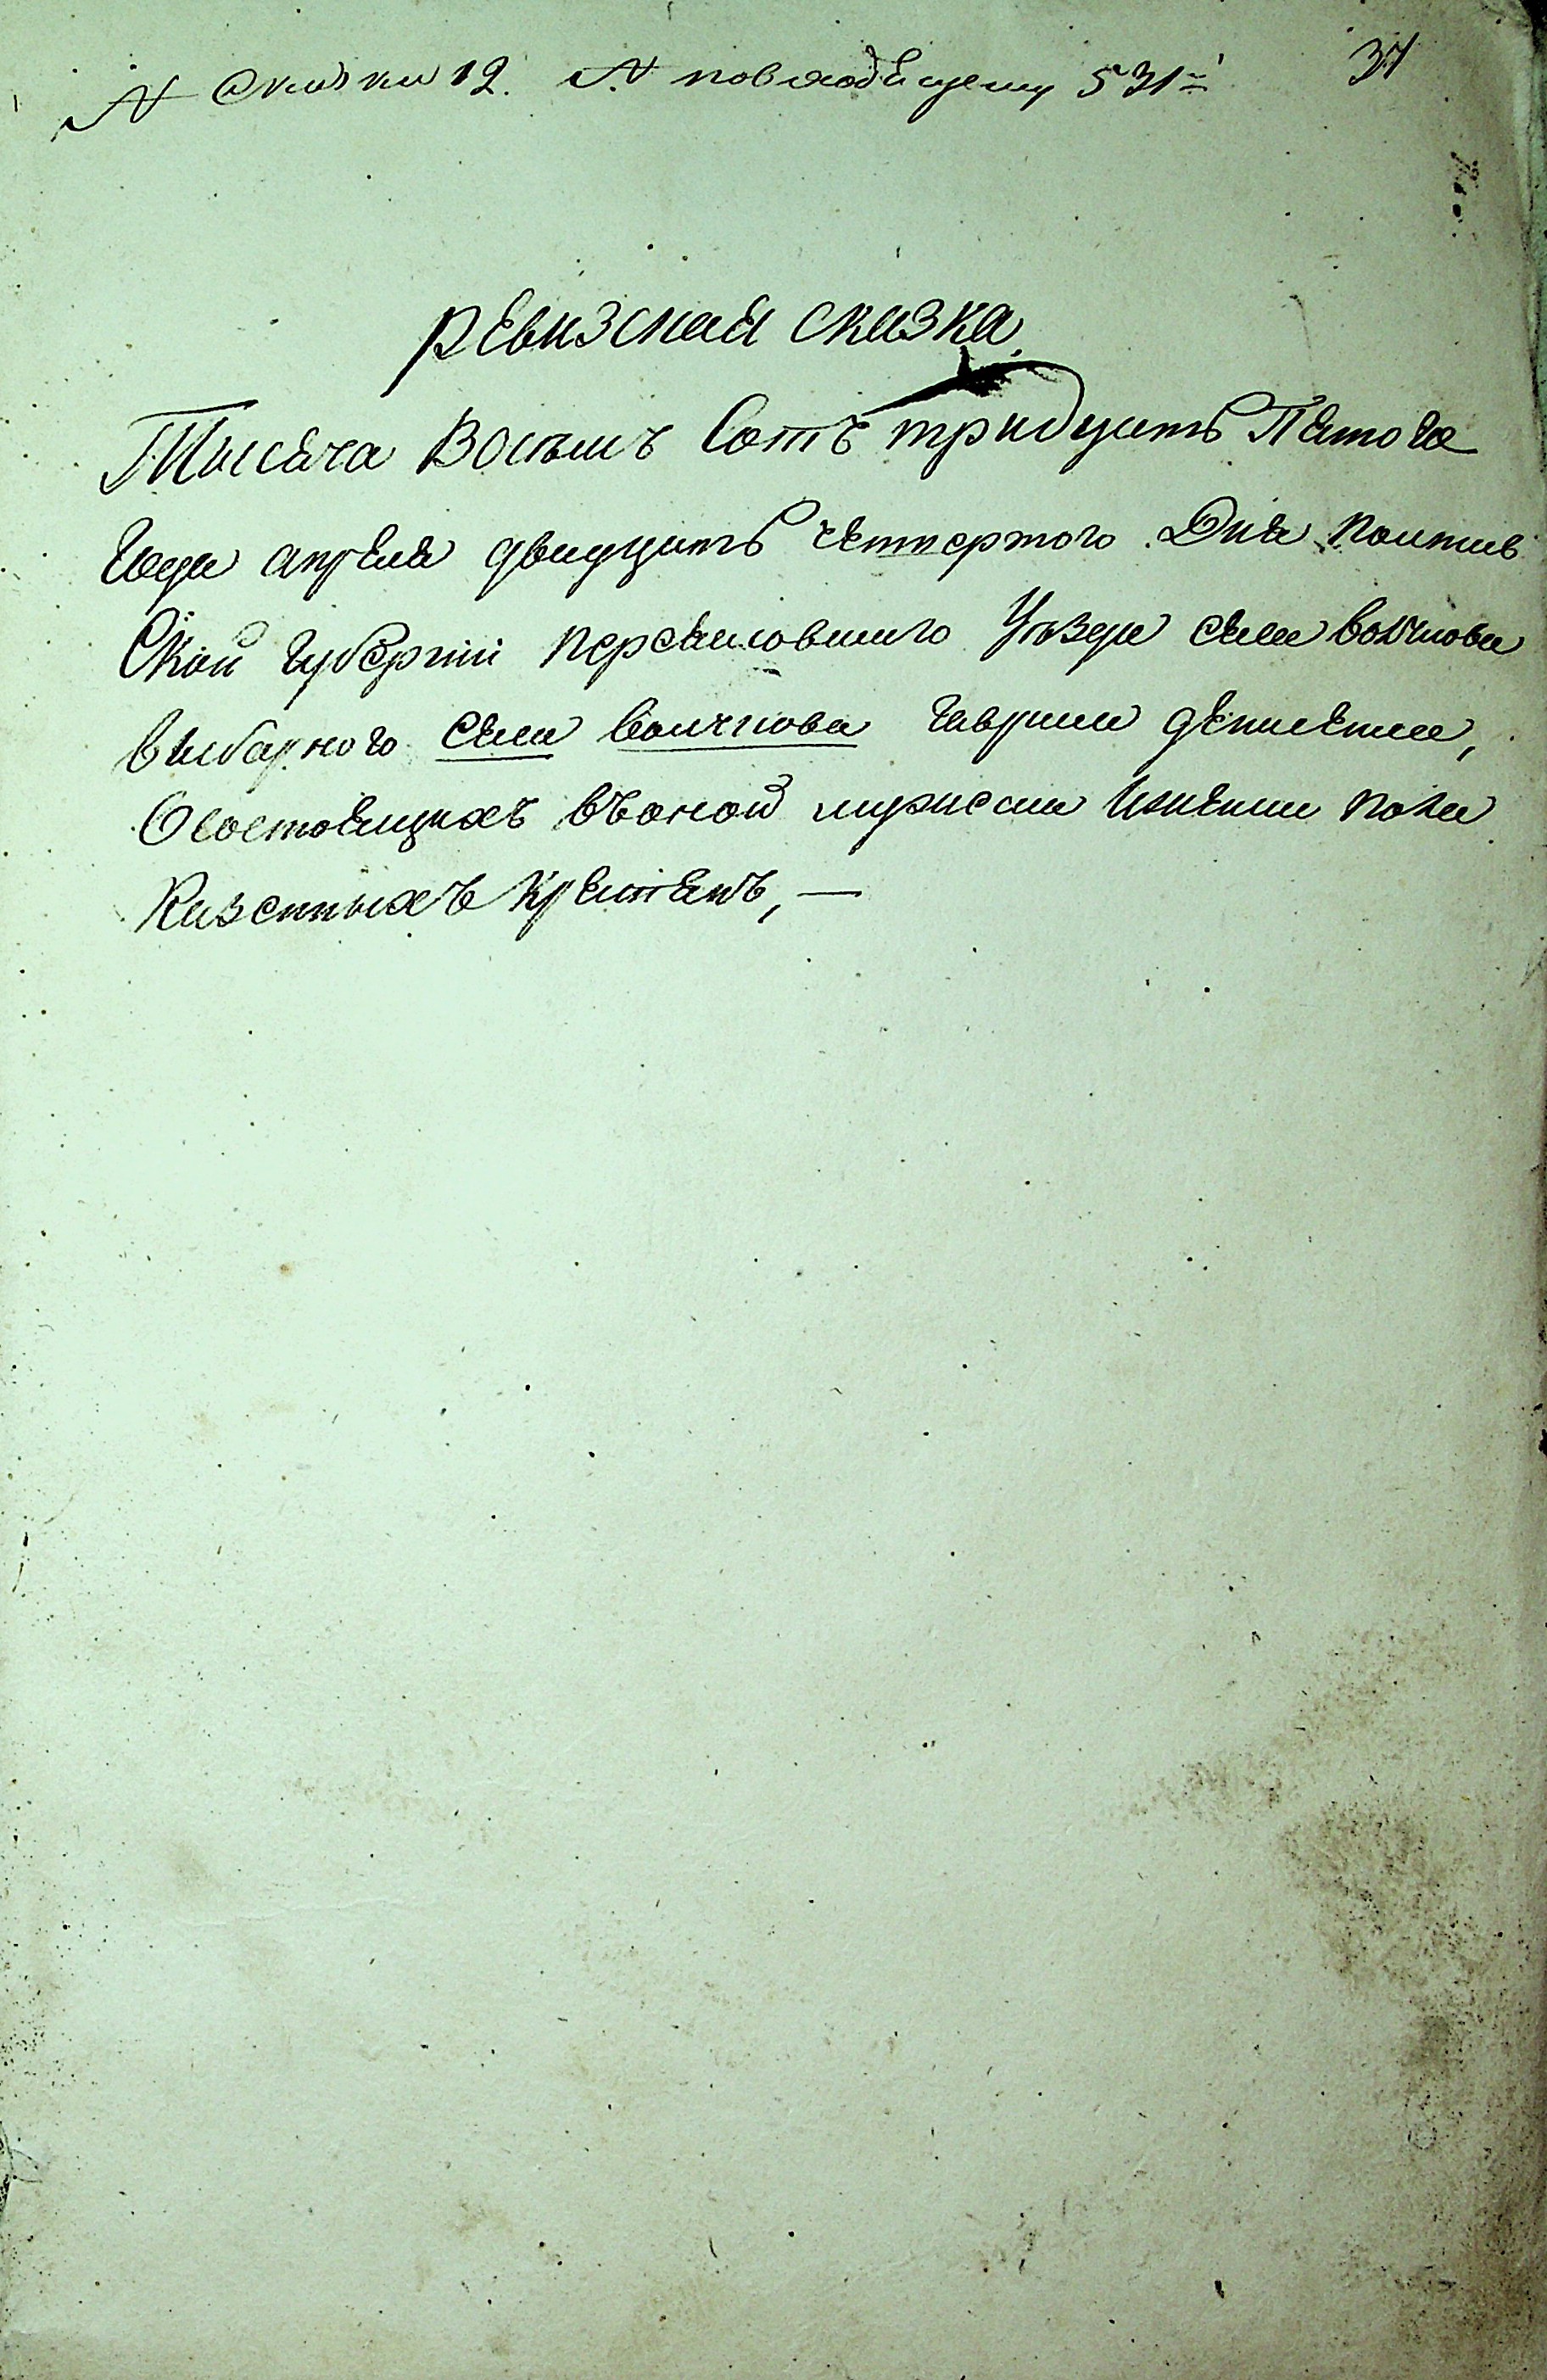 № Скаски 12. № повходящему 531й 37
Ревизская сказка
Тысяча Восемъ Сотъ тридцать Пятого
Года апреля двадцать четвертого Дня Полтав
Ской губернiи переяславского Уезда села волчкова
выборного села волчкова гаврила
О состоящихъ въоной мужеска Иженска пола
Казенныхъ крестянъ, —